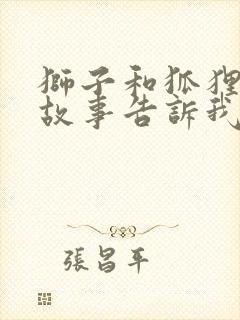 獅子和狐狸
故事告訴我
張昌平